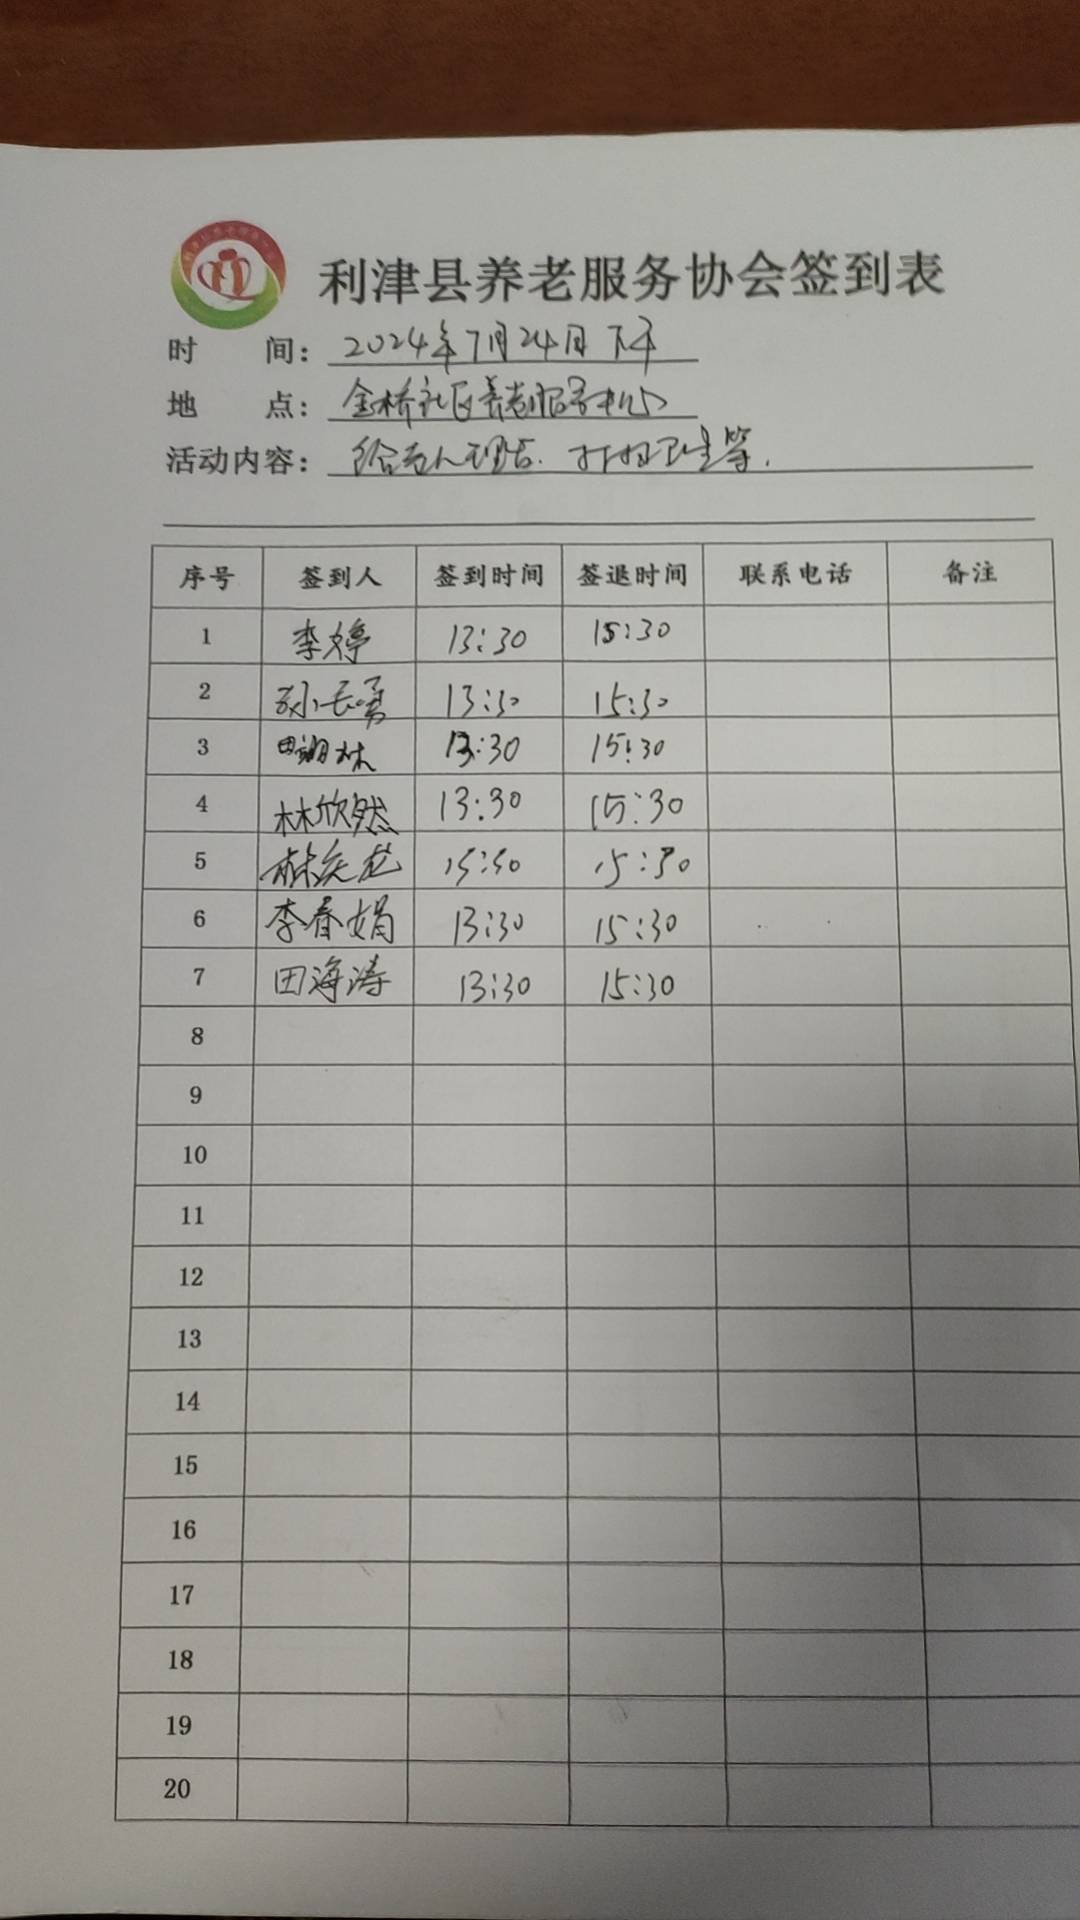 利津县养老服务协会签到表
时 间：2024年7月24日下午
地 点：金桥社区养老服务中心
活动内容：给老人理发、打扫卫生等.
序号 签到人 签到时间 签退时间 联系电话 备注
1 李婷 13:30 15:30
2 孙長勇 13:30 15:30
3 13:30 15:30
4 林欣然 13:30 15:30
5 15:30
6 李春娟 13:30 15:30
7 田海涛 13:30 15:30
8
9
10
11
12
13
14
15
16
17
18
19
20